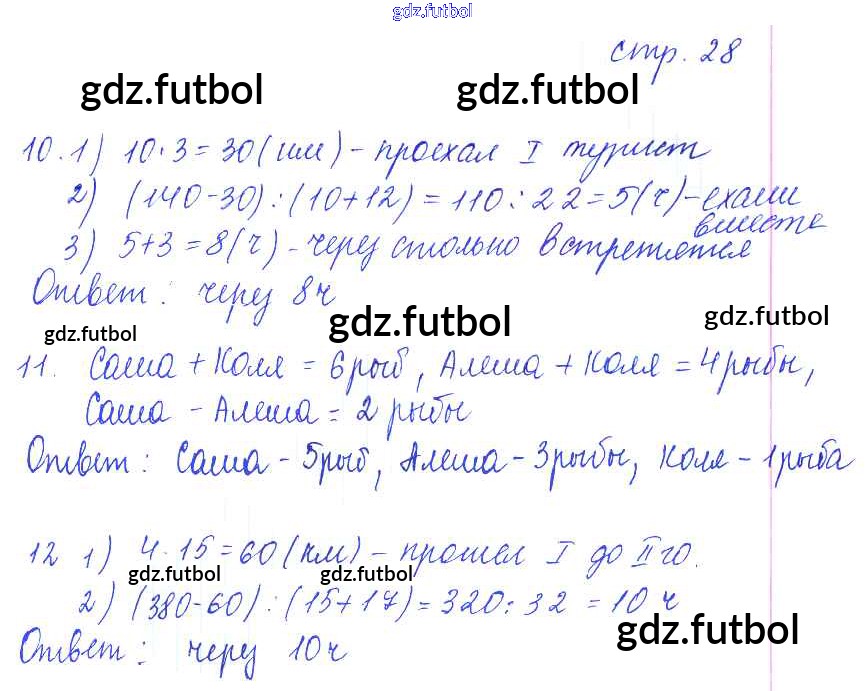 gdz.futbol
стр. 28
gdz.futbol gdz.futbol
10. 1) 10·3=30(км) - проехал I турист
2) (140-30):(10+12)=110:22=5(ч) - ехали
вместе
3) 5+3=8(ч) - через столько встретятся
Ответ: через 8ч
gdz.futbol gdz.futbol gdz.futbol
11. Саша + Коля = 6рыб, Алеша + Коля = 4рыбы,
Саша - Алеша = 2 рыбы
Ответ: Саша - 5рыб, Алеша - 3рыбы, Коля - 1рыба
12 1) 4·15=60(км) - прошел I до II го.
gdz.futbol gdz.futbol
2) (380-60):(15+17)=320:32=10ч
gdz.futbol
Ответ: через 10ч